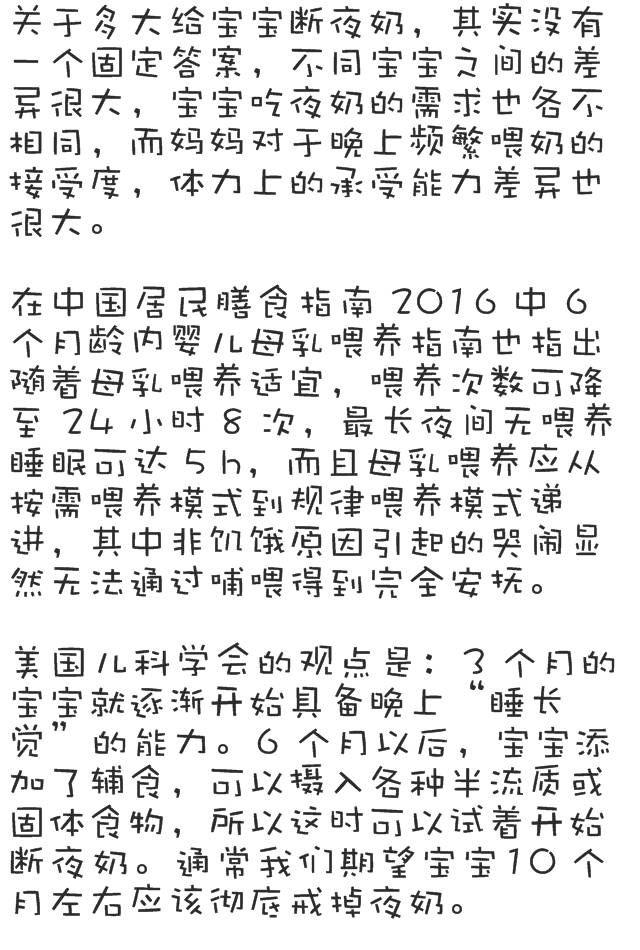 关于多大给宝宝断夜奶，其实没有
一个固定答案，不同宝宝之间的差
异很大，宝宝吃夜奶的需求也各不
相同，而妈妈对于晚上频繁喂奶的
接受度，体力上的承受能力差异也
很大。
在中国居民膳食指南 2016 中 6
个月龄内婴儿母乳喂养指南也指出
随着母乳喂养适宜，喂养次数可降
至 24 小时 8 次，最长夜间无喂养
睡眠可达 5 h，而且母乳喂养应从
按需喂养模式到规律喂养模式递
进，其中非饥饿原因引起的哭闹显
然无法通过哺喂得到完全安抚。
美国儿科学会的观点是：3 个月的
宝宝就逐渐开始具备晚上“睡长
觉”的能力。6 个月以后，宝宝添
加了辅食，可以摄入各种半流质或
固体食物，所以这时可以试着开始
断夜奶。通常我们期望宝宝10 个
月左右应该彻底戒掉夜奶。